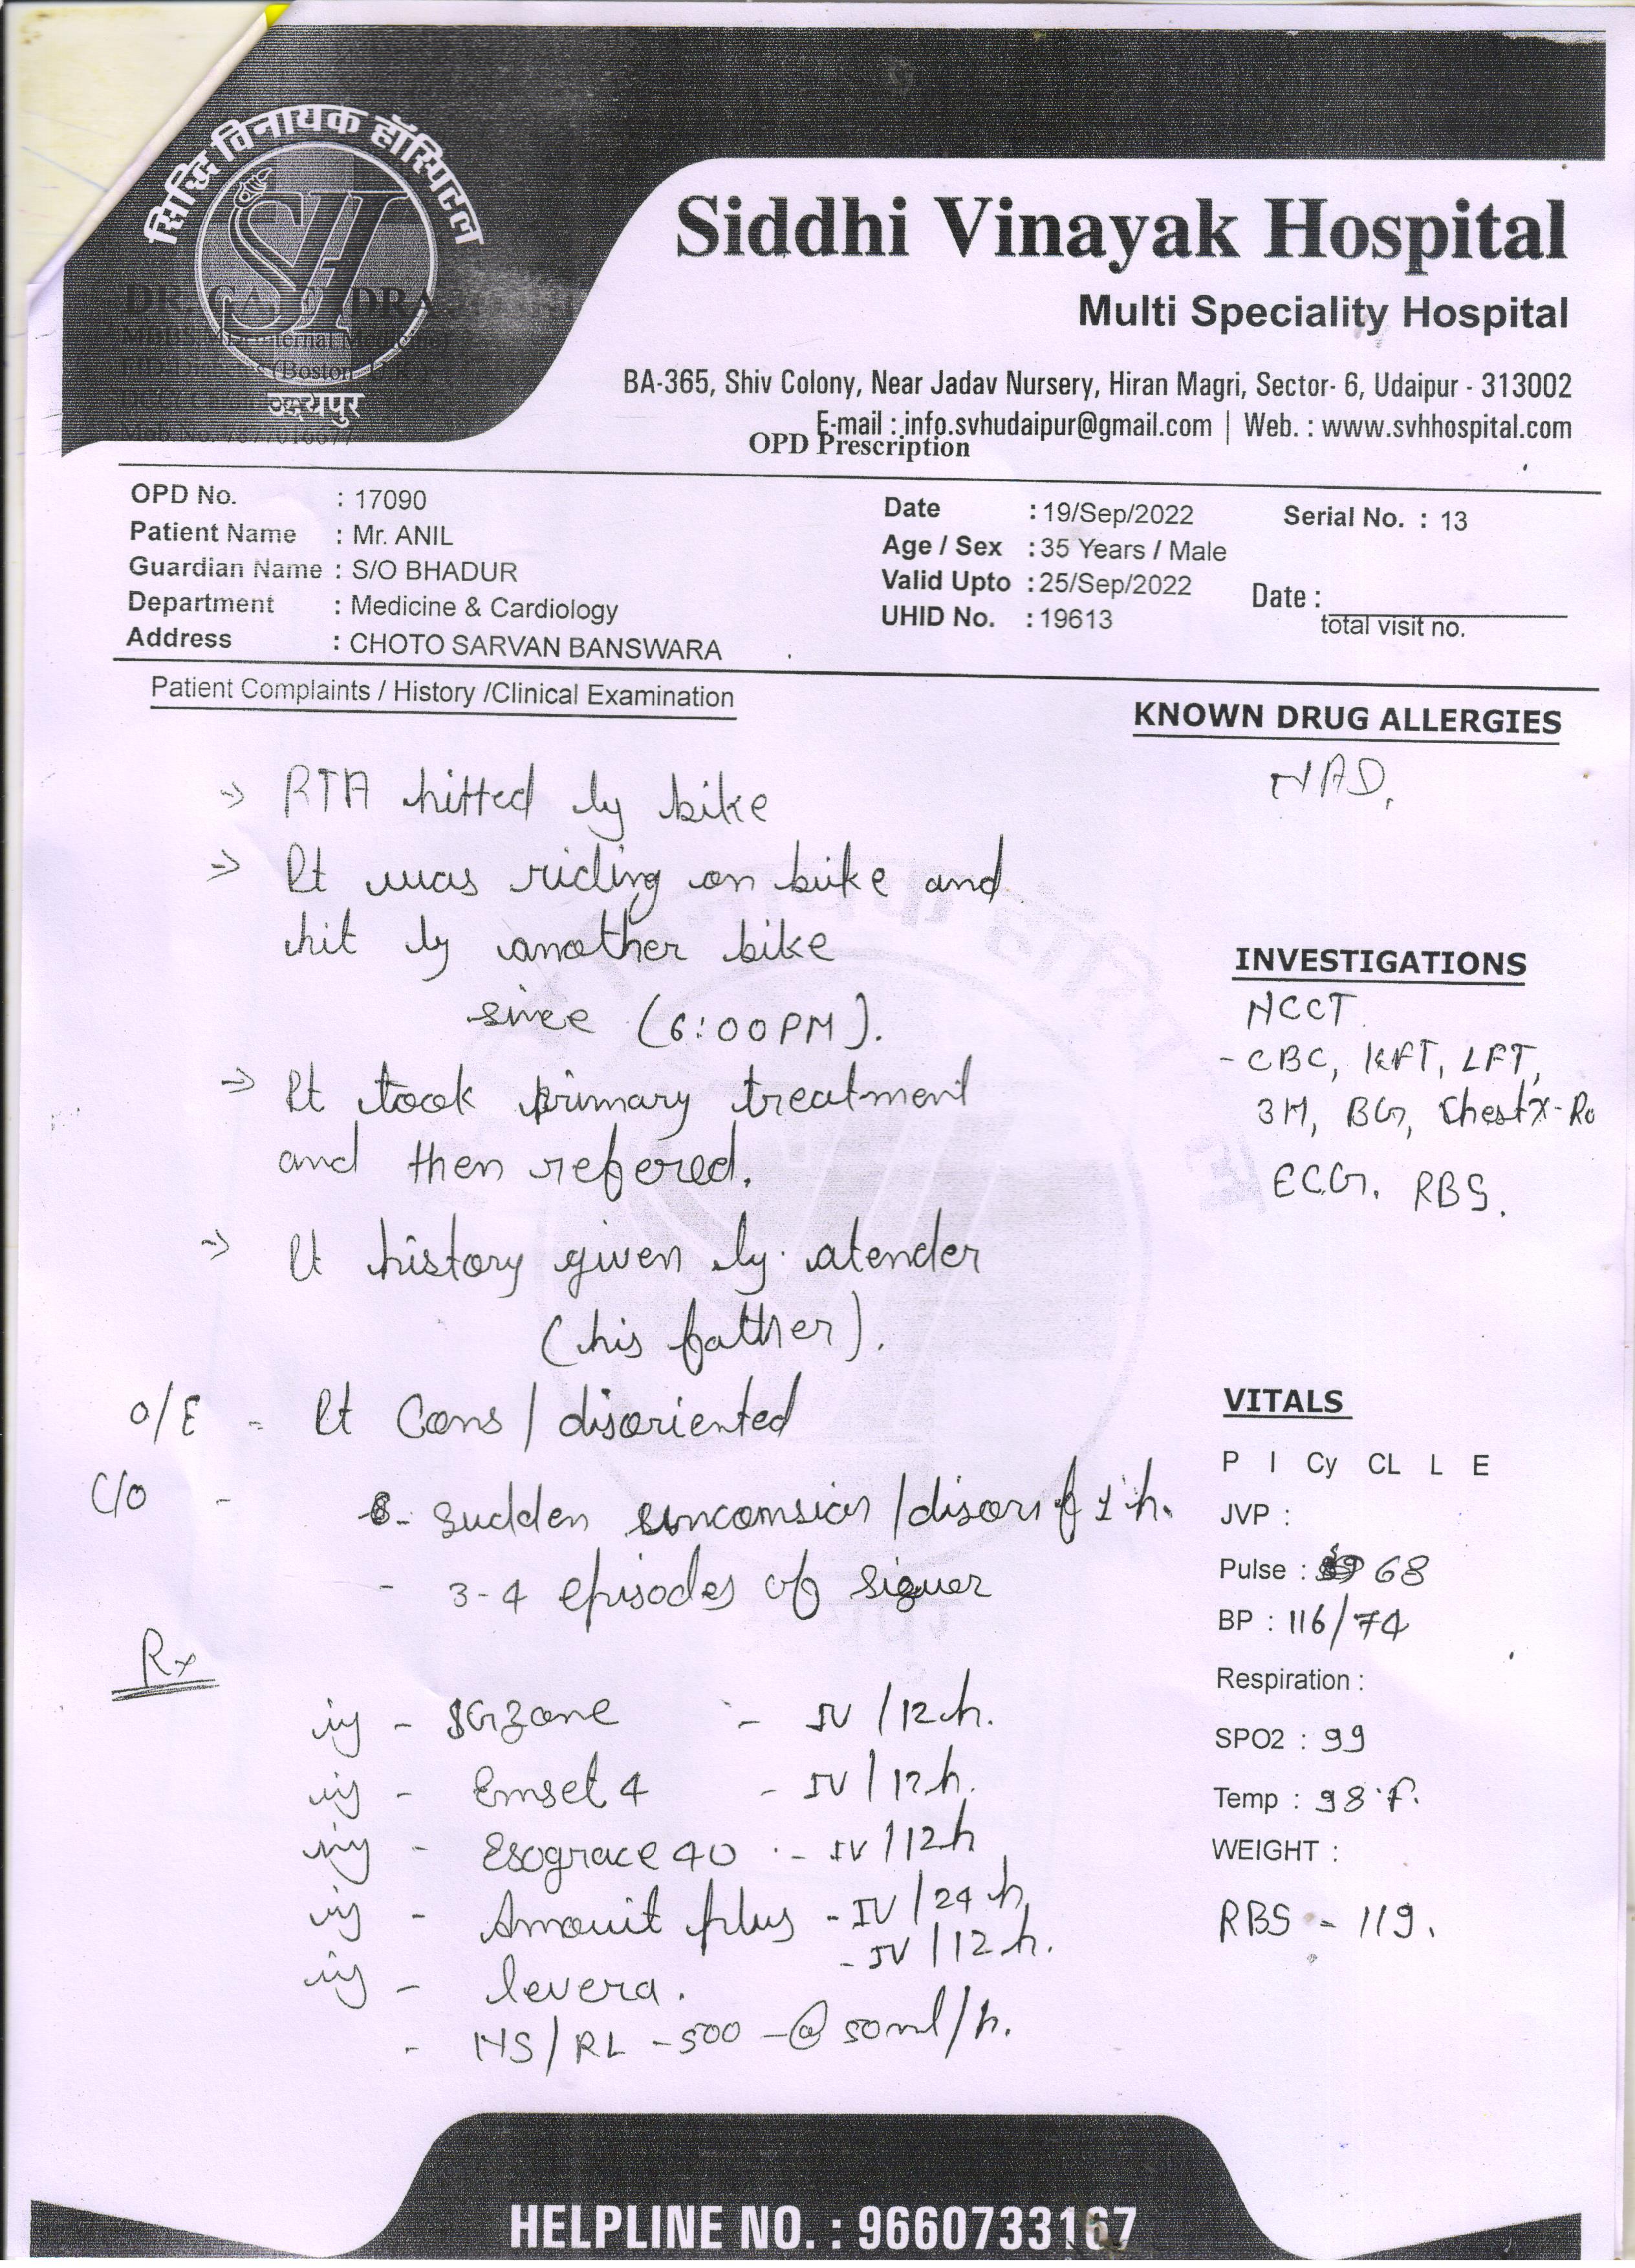 सिद्धि विनायक हॉस्पिटल
SH
उदयपुर
Siddhi Vinayak Hospital
Multi Speciality Hospital
BA-365, Shiv Colony, Near Jadav Nursery, Hiran Magri, Sector- 6, Udaipur - 313002
E-mail : info.svhudaipur@gmail.com | Web. : www.svhhospital.com
OPD Prescription
OPD No. : 17090
Patient Name : Mr. ANIL
Guardian Name : S/O BHADUR
Department : Medicine & Cardiology
Address : CHOTO SARVAN BANSWARA
Date : 19/Sep/2022 Serial No. : 13
Age / Sex : 35 Years / Male
Valid Upto : 25/Sep/2022 Date :
UHID No. : 19613 total visit no.
Patient Complaints / History /Clinical Examination
KNOWN DRUG ALLERGIES
NAD.
=> RTA hitted by bike
=> Pt was riding on bike and
hit by another bike
since (6:00PM).
=> Pt took primary treatment
and then refered.
=> Pt history given by atender
(his father).
INVESTIGATIONS
NCCT
- CBC, KFT, LFT,
3H, BG, Chest X-Ra
ECG. RBS.
O/E - Pt Cons / disoriented
C/O - Sudden /  1 h.
- 3-4 episodes of
VITALS
P I Cy CL L E
JVP :
Pulse : 68
BP : 116/74
Respiration :
SPO2 : 99
Temp : 98°F.
WEIGHT :
RBS - 119.
Rx
inj - SGzone - IV / 12 h.
inj - Emset 4 - IV / 12 h.
inj - Esograce 40 - IV / 12 h
inj - plus - IV / 24 h
inj - levera. - IV / 12 h.
- NS / RL - 500 - @ 50ml/h.
HELPLINE NO. : 9660733167